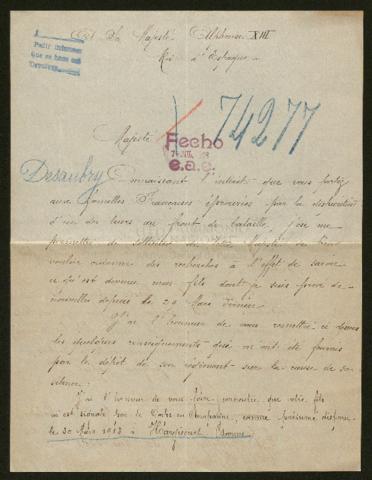 A Sa Majesté Alphonse XIII
Roi d'Espagne
Pedir informes
74277
Majesté
Fecho
e.a.e.
Desaubry
Connaissant l'intérêt que vous portez
aux familles Françaises éprouvées par la disparition
d'un des leurs au front de bataille, j'ose me
permettre de solliciter de Votre Majesté de bien
vouloir ordonner des recherches à l'effet de savoir
ce qu'est devenu mon fils dont je suis privée de
nouvelles depuis le 30 Mars dernier.
J'ai l'honneur de vous remettre ci contre
les quelques renseignements qui m'ont été fournis
par le dépôt de son régiment sur la cause de son
silence:
J'ai l'honneur de vous faire connaître que votre fils
m'est signalé par le Centre en Comptabilité, comme présumé disparu
le 30 Mars 1918 à Hangest Somme